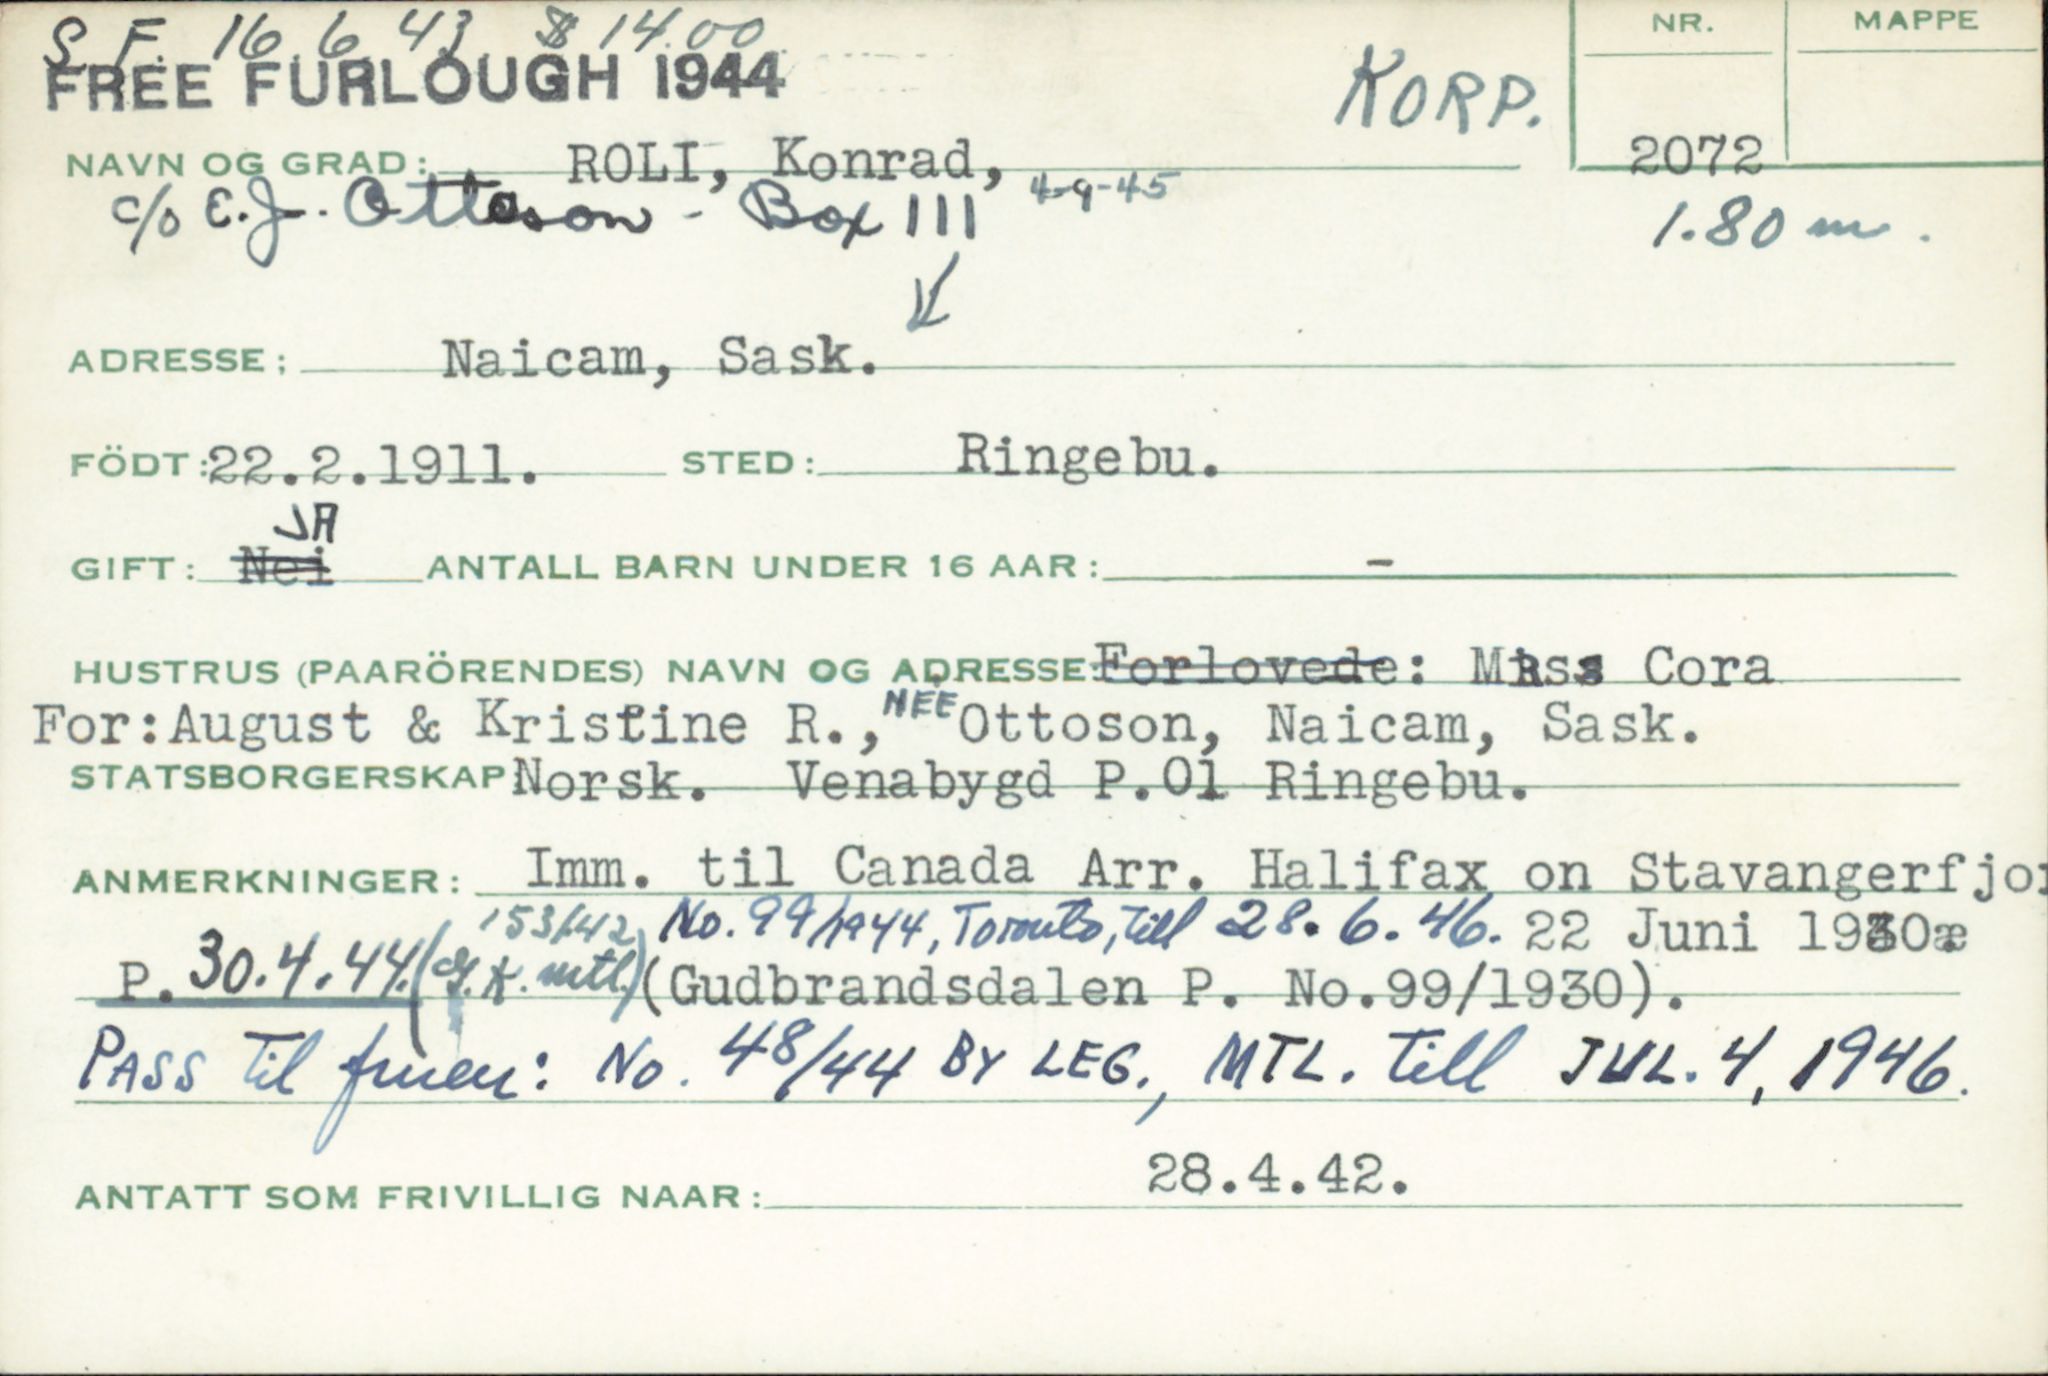 S. F. 16 6 43 $ 14.00
FREE FURLOUGH 1944
KORP.
NR. MAPPE
NAVN OG GRAD: ROLI, Konrad, 2072
c/o E.J. Ottoson - Box 111 4-9-45 1.80 m.
ADRESSE: Naicam, Sask.
FÖDT: 22.2.1911. STED: Ringebu.
JA
GIFT: Nei ANTALL BARN UNDER 16 AAR: -
HUSTRUS (PAARÖRENDES) NAVN OG ADRESSE: Forlovede: MRs Cora
For: August & Kristine R., NÉE Ottoson, Naicam, Sask.
STATSBORGERSKAP Norsk. Venabygd P.O1 Ringebu.
ANMERKNINGER: Imm. til Canada Arr. Halifax on Stavangerfjor
153/42 No. 99/1944, Toronto, till 28.6.46. 22 Juni 1930
P. 30.4.44. (G.K. mtl.) (Gudbrandsdalen P. No.99/1930).
PASS til fruen: No. 48/44 BY LEG., MTL. till JUL. 4, 1946.
ANTATT SOM FRIVILLIG NAAR: 28.4.42.